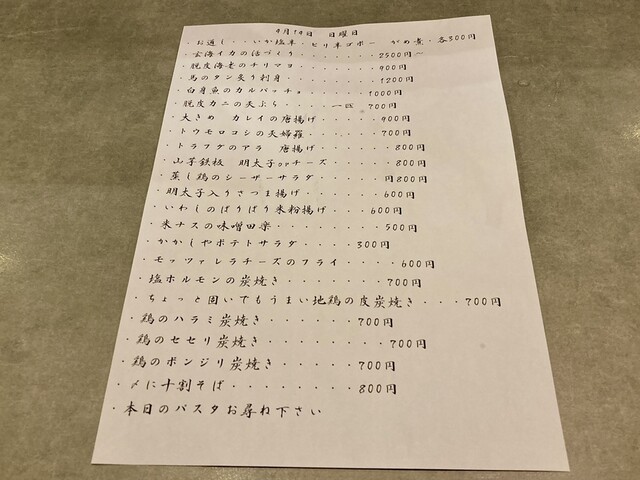 4月14日　日曜日
・お通し・・いか塩辛・ピリ辛ゴボー　がめ煮・各300円
・玄海イカの活づくり・・・・・・・2500円～
・脱皮海老のチリマヨ・・・・・・・900円
・馬のタン炙り刺身・・・・・・・・1200円
・白身魚のカルパッチョ・・・・・・1000円
・脱皮カニの天ぷら・・・・一匹　700円
・大きめ　カレイの唐揚げ・・・・・900円
・トウモロコシの天婦羅・・・・・・700円
・トラフグのアラ　唐揚げ・・・・・800円
・山芋鉄板　明太子orチーズ・・・・・800円
・蒸し鶏のシーザーサラダ・・・・・円800円
・明太子入りさつま揚げ・・・・・・600円
・いわしのぱりぱり米粉揚げ・・・・600円
・米ナスの味噌田楽・・・・・・・・500円
・かかしやポテトサラダ・・・・300円
・モッツァレラチーズのフライ・・・・600円
・塩ホルモンの炭焼き・・・・・・・700円
・ちょっと固いでもうまい地鶏の皮炭焼き・・・700円
・鶏のハラミ炭焼き・・・・・・700円
・鶏のセセリ炭焼き・・・・・・・・700円
・鶏のボンジリ炭焼き・・・・・700円
・〆に十割そば・・・・・・・・800円
・本日のパスタお尋ね下さい